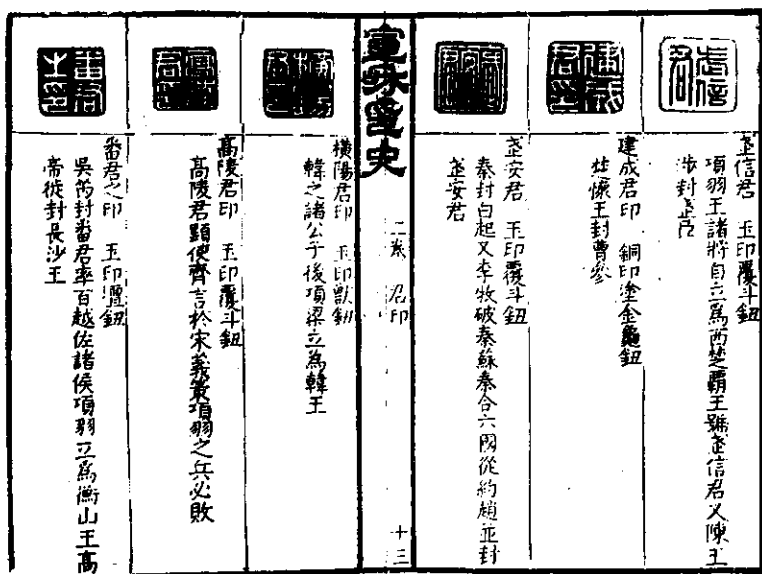 武信君
武信君 玉印覆斗鈕
項羽王諸將自立爲西楚霸王號武信君又陳王
涉封武臣
建成君印
建成君印 銅印塗金龜鈕
楚懷王封曹參
武安君 玉印覆斗鈕
秦封白起又李牧破秦蘇秦合六國從約趙並封
武安君
宣龢印史 二卷 君印 十三
橫陽君印
橫陽君印 玉印獸鈕
韓之諸公子後項梁立爲韓王
高陵君印
高陵君印 玉印覆斗鈕
高陵君顯使齊言於宋義策項羽之兵必敗
番君之印
番君之印 玉印鈕
吳芮封番君率百越佐諸侯項羽立爲衡山王高
帝徙封長沙王